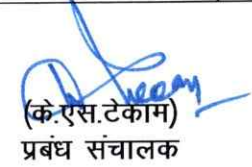 (के.एस.टेकाम)
प्रबंध संचालक